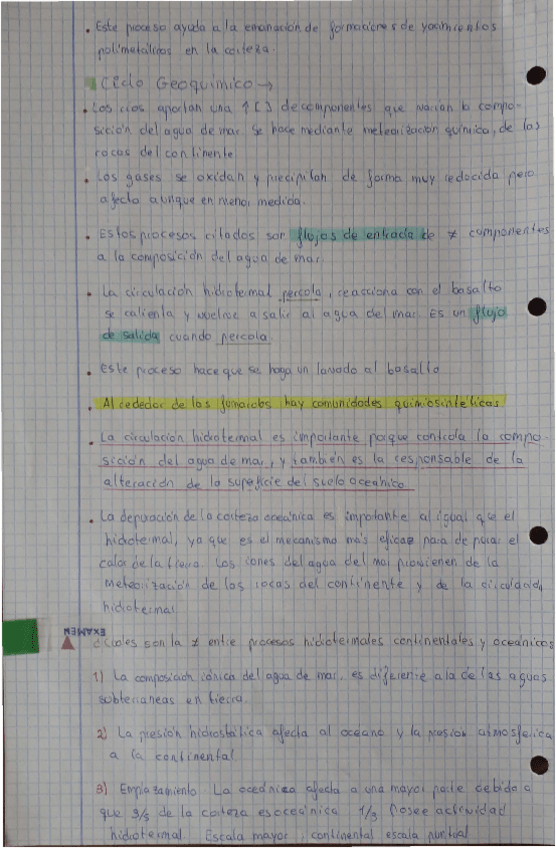 • Este proceso ayuda a la emanación de formaciones de yacimientos
polimetálicos en la corteza.
Ciclo Geoquímico →
• Los ríos aportan una ↑[ ] de componentes que varían la compo-
sición del agua de mar. Se hace mediante meteorización química, de las
rocas del continente
• Los gases se oxidan y precipitan de forma muy reducida pero
afecta aunque en menor medida.
• Estos procesos citados son flujos de entrada de ≠ componentes
a la composición del agua de mar.
• La circulación hidrotermal percola, reacciona con el basalto
se calienta y vuelve a salir al agua del mar. Es un flujo
de salida cuando percola.
• Este proceso hace que se haga un lavado al basalto
• Alrededor de las fumarolas hay comunidades quimiosintéticas.
• La circulación hidrotermal es importante porque controla la compo-
sición del agua de mar, y también es la responsable de la
alteración de la superficie del suelo oceánico.
• La depuración de la corteza oceánica es importante al igual que el
hidrotermal, ya que es el mecanismo más eficaz para depurar el
calor de la tierra. Los iones del agua del mar provienen de la
meteorización de las rocas del continente y de la circulación
hidrotermal
EXAMEN
¿Cuáles son la ≠ entre procesos hidrotermales continentales y oceánicos
1) La composición iónica del agua de mar es diferente a la de las aguas
subterráneas en tierra.
2) La presión hidrostática afecta al océano y la presión atmosférica
a la continental
3) Emplazamiento. La oceánica afecta a una mayor parte debido a
que 3/5 de la corteza es oceánica 1/3 Posee actividad
hidrotermal. Escala mayor, continental escala puntual